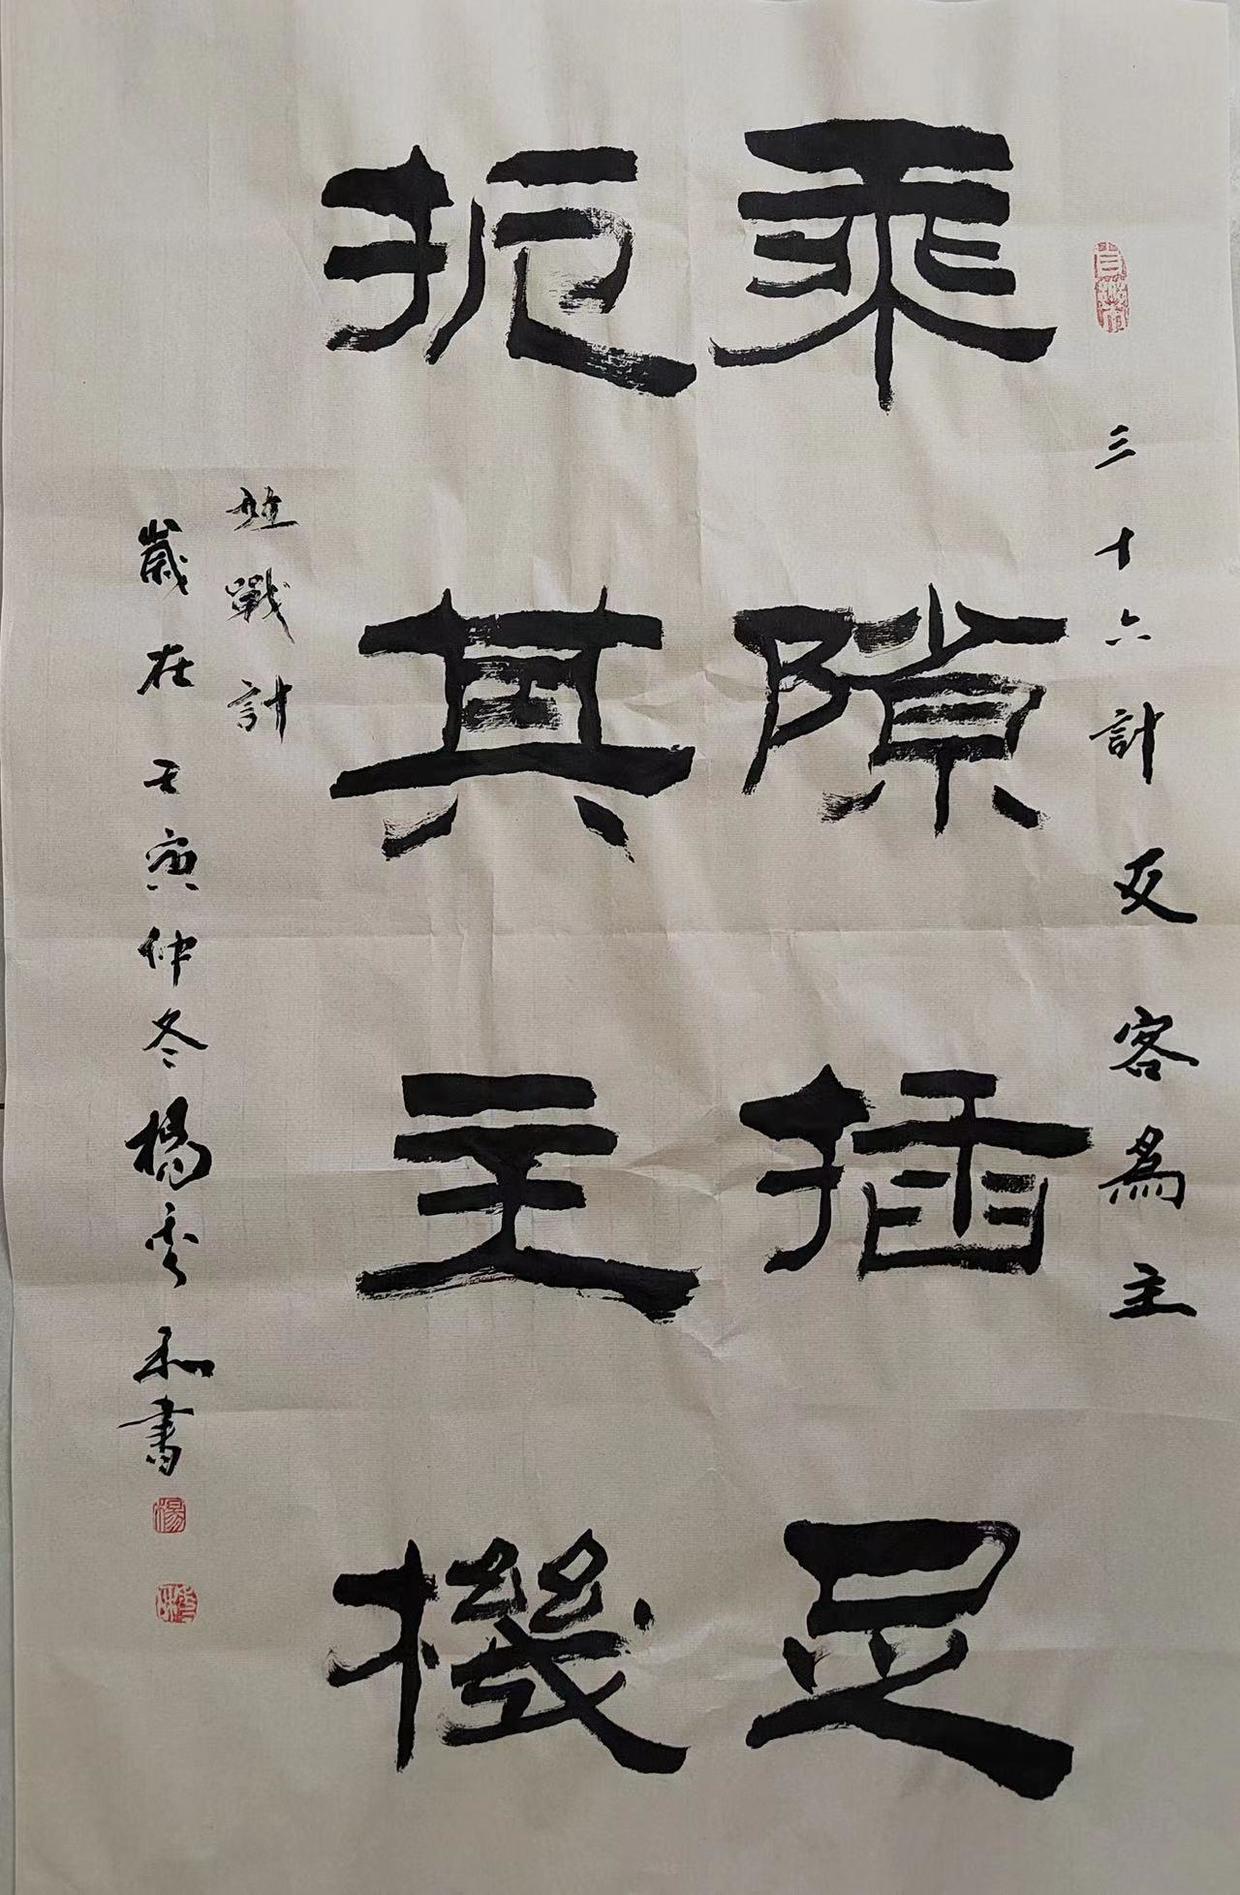 三十六計反客為主
乘隙插足
扼其主機
並戰計
歲在壬寅仲冬楊秀和書